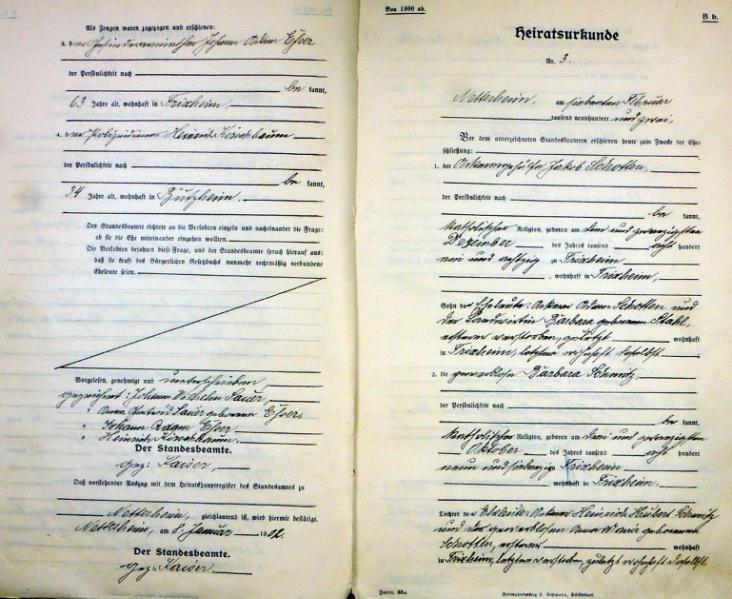 Als Zeugen waren zugezogen und erschienen:
3. der Johann Adam Esser
der Persönlichkeit nach
be kannt,
63 Jahre alt, wohnhaft in Frixheim.
4. der Polizeidiener Heinrich Kirschbaum
der Persönlichkeit nach
be kannt,
34 Jahre alt, wohnhaft in Bützheim.
Der Standesbeamte richtete an die Verlobten einzeln und nacheinander die Frage:
ob sie die Ehe miteinander eingehen wollten.
Die Verlobten bejahten diese Frage, und der Standesbeamte sprach hierauf aus:
daß sie kraft des Bürgerlichen Gesetzbuchs nunmehr rechtmäßig verbundene
Eheleute seien.
Vorgelesen, genehmigt und unterschrieben,
gezeichnet: Johann Wilhelm Sauer,
" Anna Gertrud Sauer geborene Esser,
" Johann Adam Esser
" Heinrich Kirschbaum.
Der Standesbeamte.
gez: Kaiser,
Daß vorstehender Auszug mit dem Heiratshauptregister des Standesamts zu
Netterheim, gleichlautend ist, wird hiermit bestätigt.
Netterheim, am 8 Januar 1902.
Der Standesbeamte.
gez: Kaiser.
Von 1900 ab.
B b.
Heiratsurkunde
Nr. 3.
Netterheim, am siebenten Februar
tausend neunhundert und zwei.
Vor dem unterzeichneten Standesbeamten erschienen heute zum Zwecke der Ehe-
schließung:
1. der Jakob Schotten,
der Persönlichkeit nach
be kannt,
katholischer Religion, geboren am drei und zwanzigsten
Dezember des Jahres tausend acht hundert
neun und sechzig zu Frixheim
, wohnhaft in Frixheim,
Sohn der Eheleute: Ackerer Adam Schotten und
der Landwirtin Barbara geborenen Stahl,
ersterer verstorben, zuletzt wohnhaft
in Frixheim, letztere wohnhaft daselbst.
2. die gewerblose Barbara Schmitz,
der Persönlichkeit nach
be kannt,
katholischer Religion, geboren am drei und zwanzigsten
Oktober des Jahres tausend acht hundert
neun und siebenzig zu Frixheim
, wohnhaft in Frixheim,
Tochter der Eheleute: Ackerer Heinrich Hubert Schmitz
und der gewerblosen Anna Maria geborenen
ersterer wohnhaft
in Frixheim, letztere verstorben, zuletzt wohnhaft daselbst.
Form. 35a.